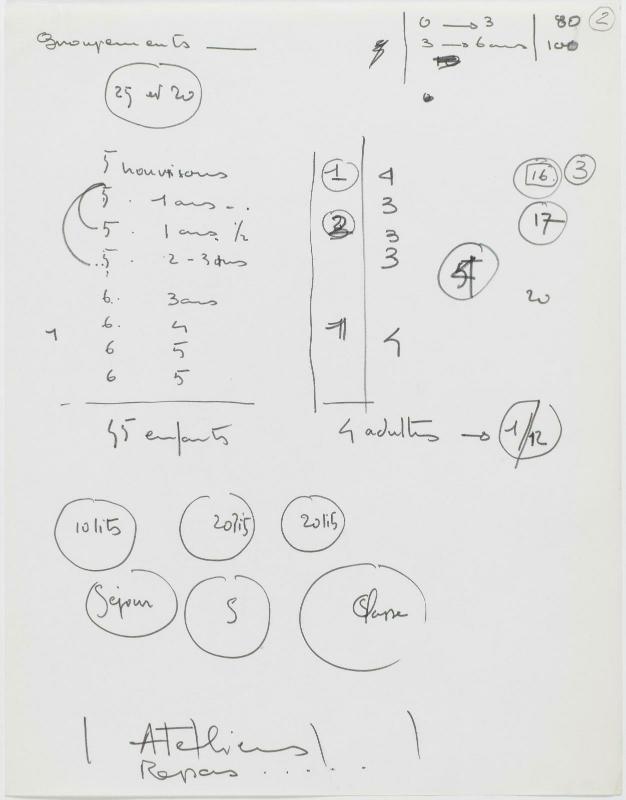 2
0 → 3 80
3 → 6 ans 100
Groupements
25 et 20
5 nourrissons
5. 1 ans
5. 1 ans 1/2
5. 2-3 ans
6. 3 ans
6. 4
6 5
6 5
1
45 enfants
1 4
3
3
3
4
16 3
17
20
4 adultes → 1/12
10 lits
20 lits
20 lits
Séjour
S
Classe
Atelliers
Repas .....